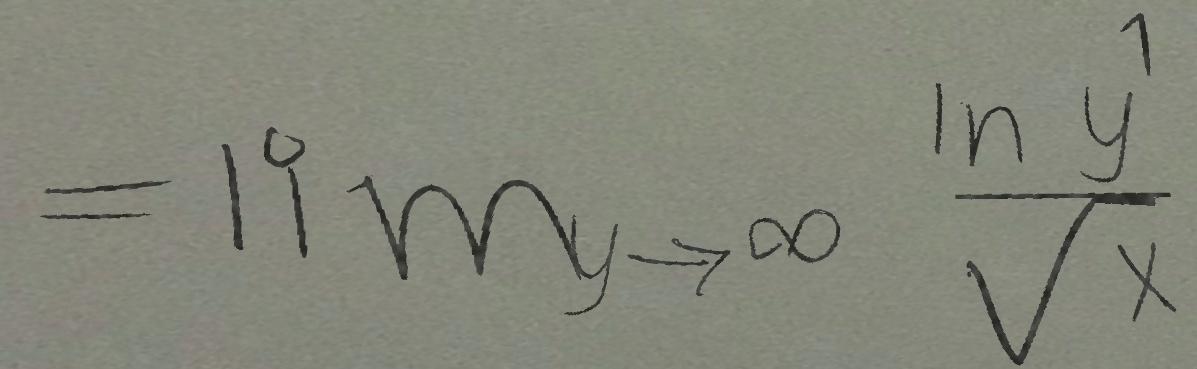 = lim_{y \to \infty} \frac{\ln y^1}{\sqrt{x}}